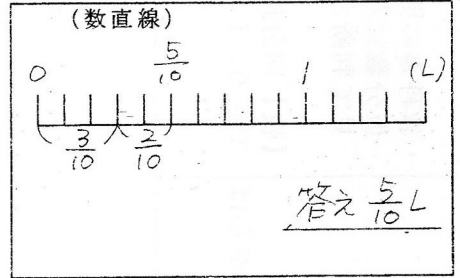 (数直線)
5/10
0 1 (L)
3/10 2/10
答え 5/10 L